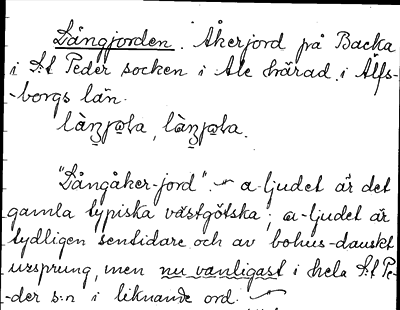 Långjorden. Åkerjord på Backa
i S:t Peder socken i Ale härad i Älfs-
-borgs län.
"Långåker-jord". — a-ljudet är det
gamla typiska västgötska; a-ljudet är
tydligen sentidare och av bohus-danskt
ursprung, men nu vanligast i hela S:t Pe-
-der s:n i liknande ord. —